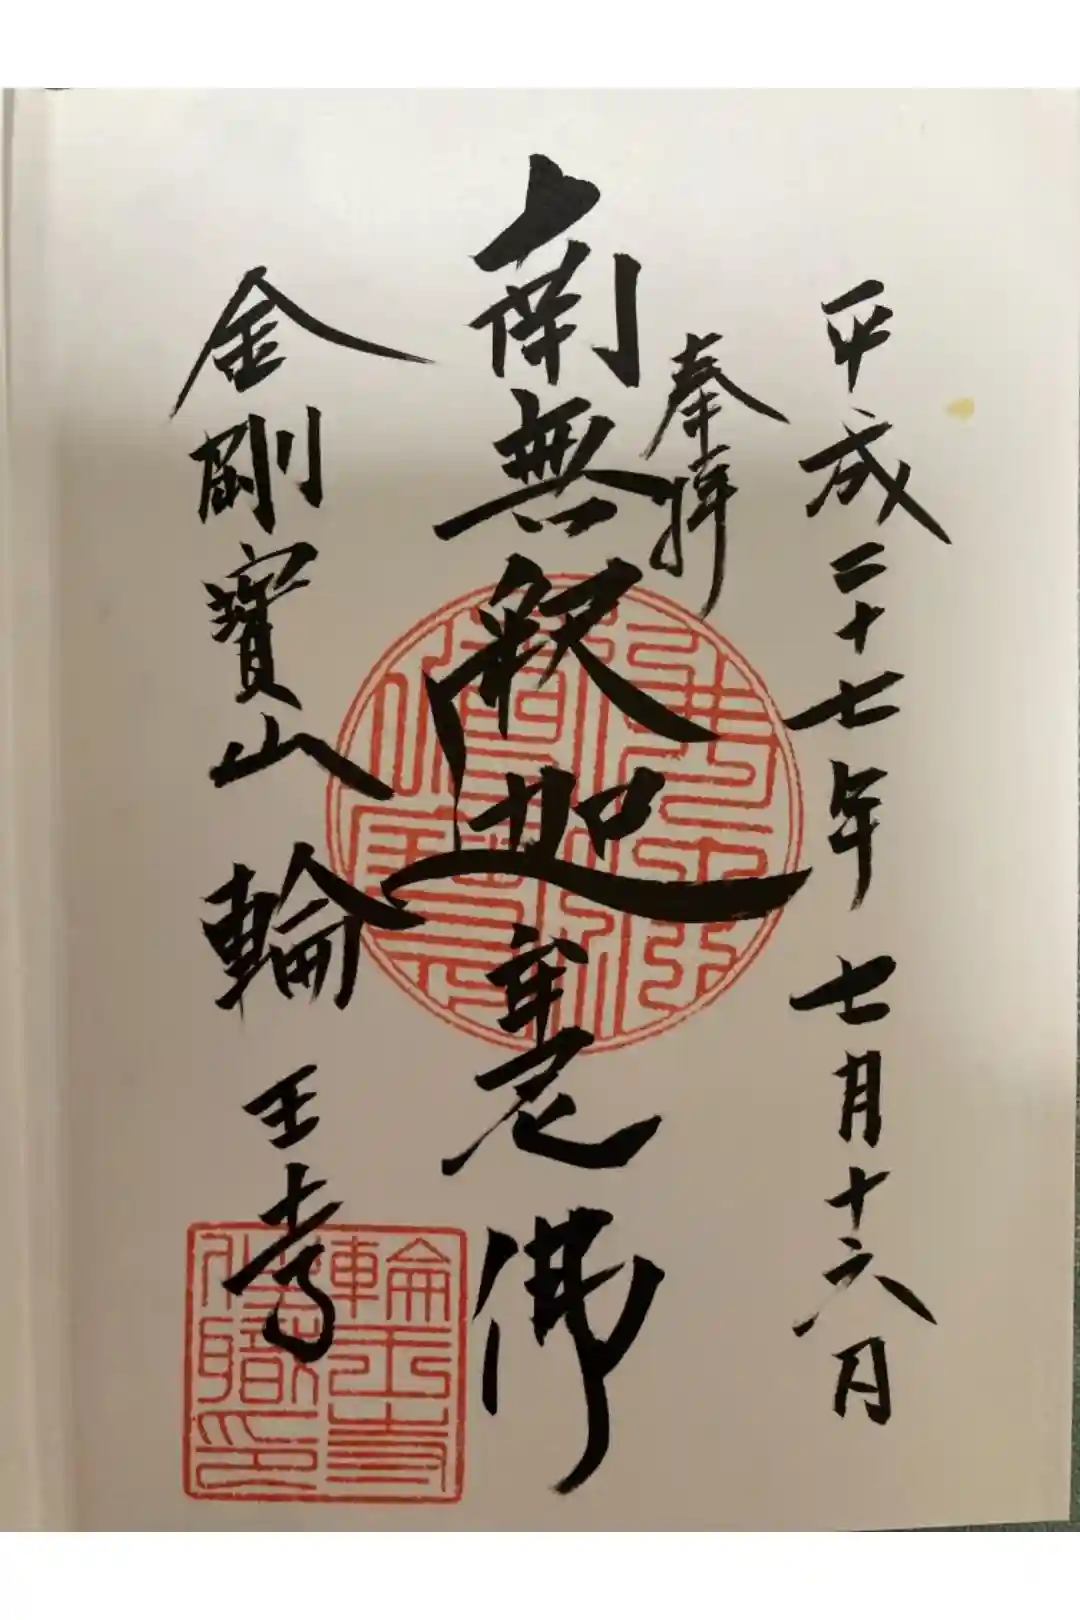 平成二十七年 七月十六日
奉拝
南無釈迦牟尼佛
金剛寳山 輪王寺
輪王寺
住職印